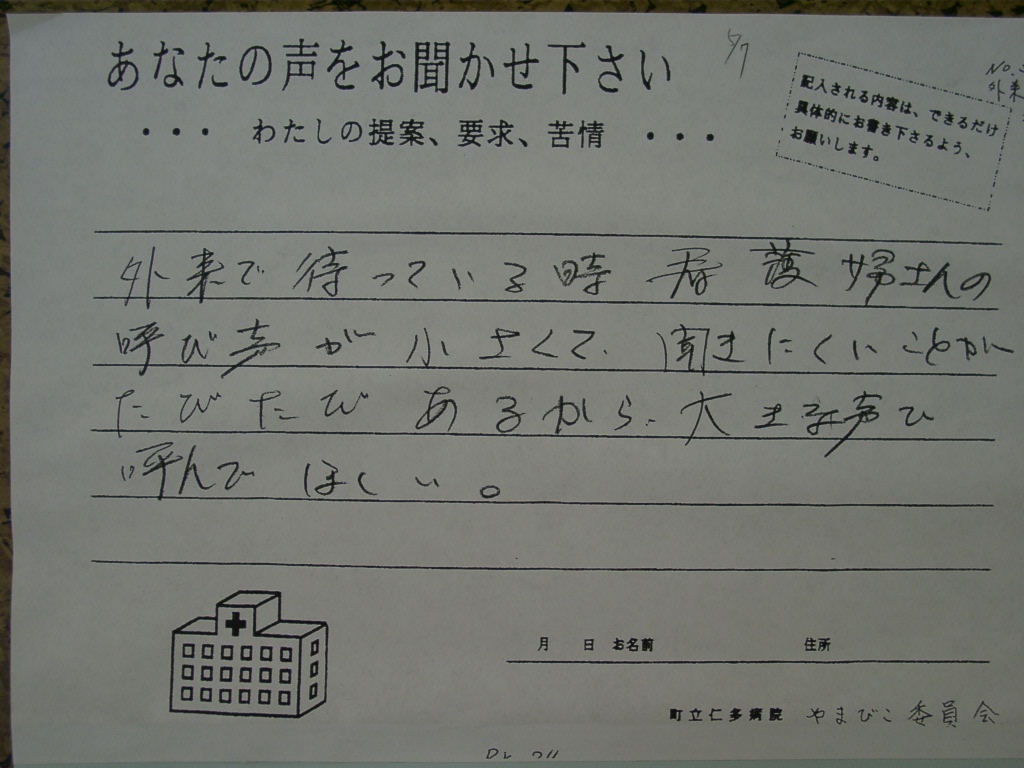 あなたの声をお聞かせ下さい
・・・ わたしの提案、要求、苦情 ・・・
5/7
No.
外来
記入される内容は、できるだけ
具体的にお書き下さるよう、
お願いします。
外来で待っている時 看護婦さんの
呼び声が小さくて、聞きにくいことが
たびたびあるから、大きな声で
呼んでほしい。
月 日 お名前 住所
町立仁多病院 やまびこ委員会